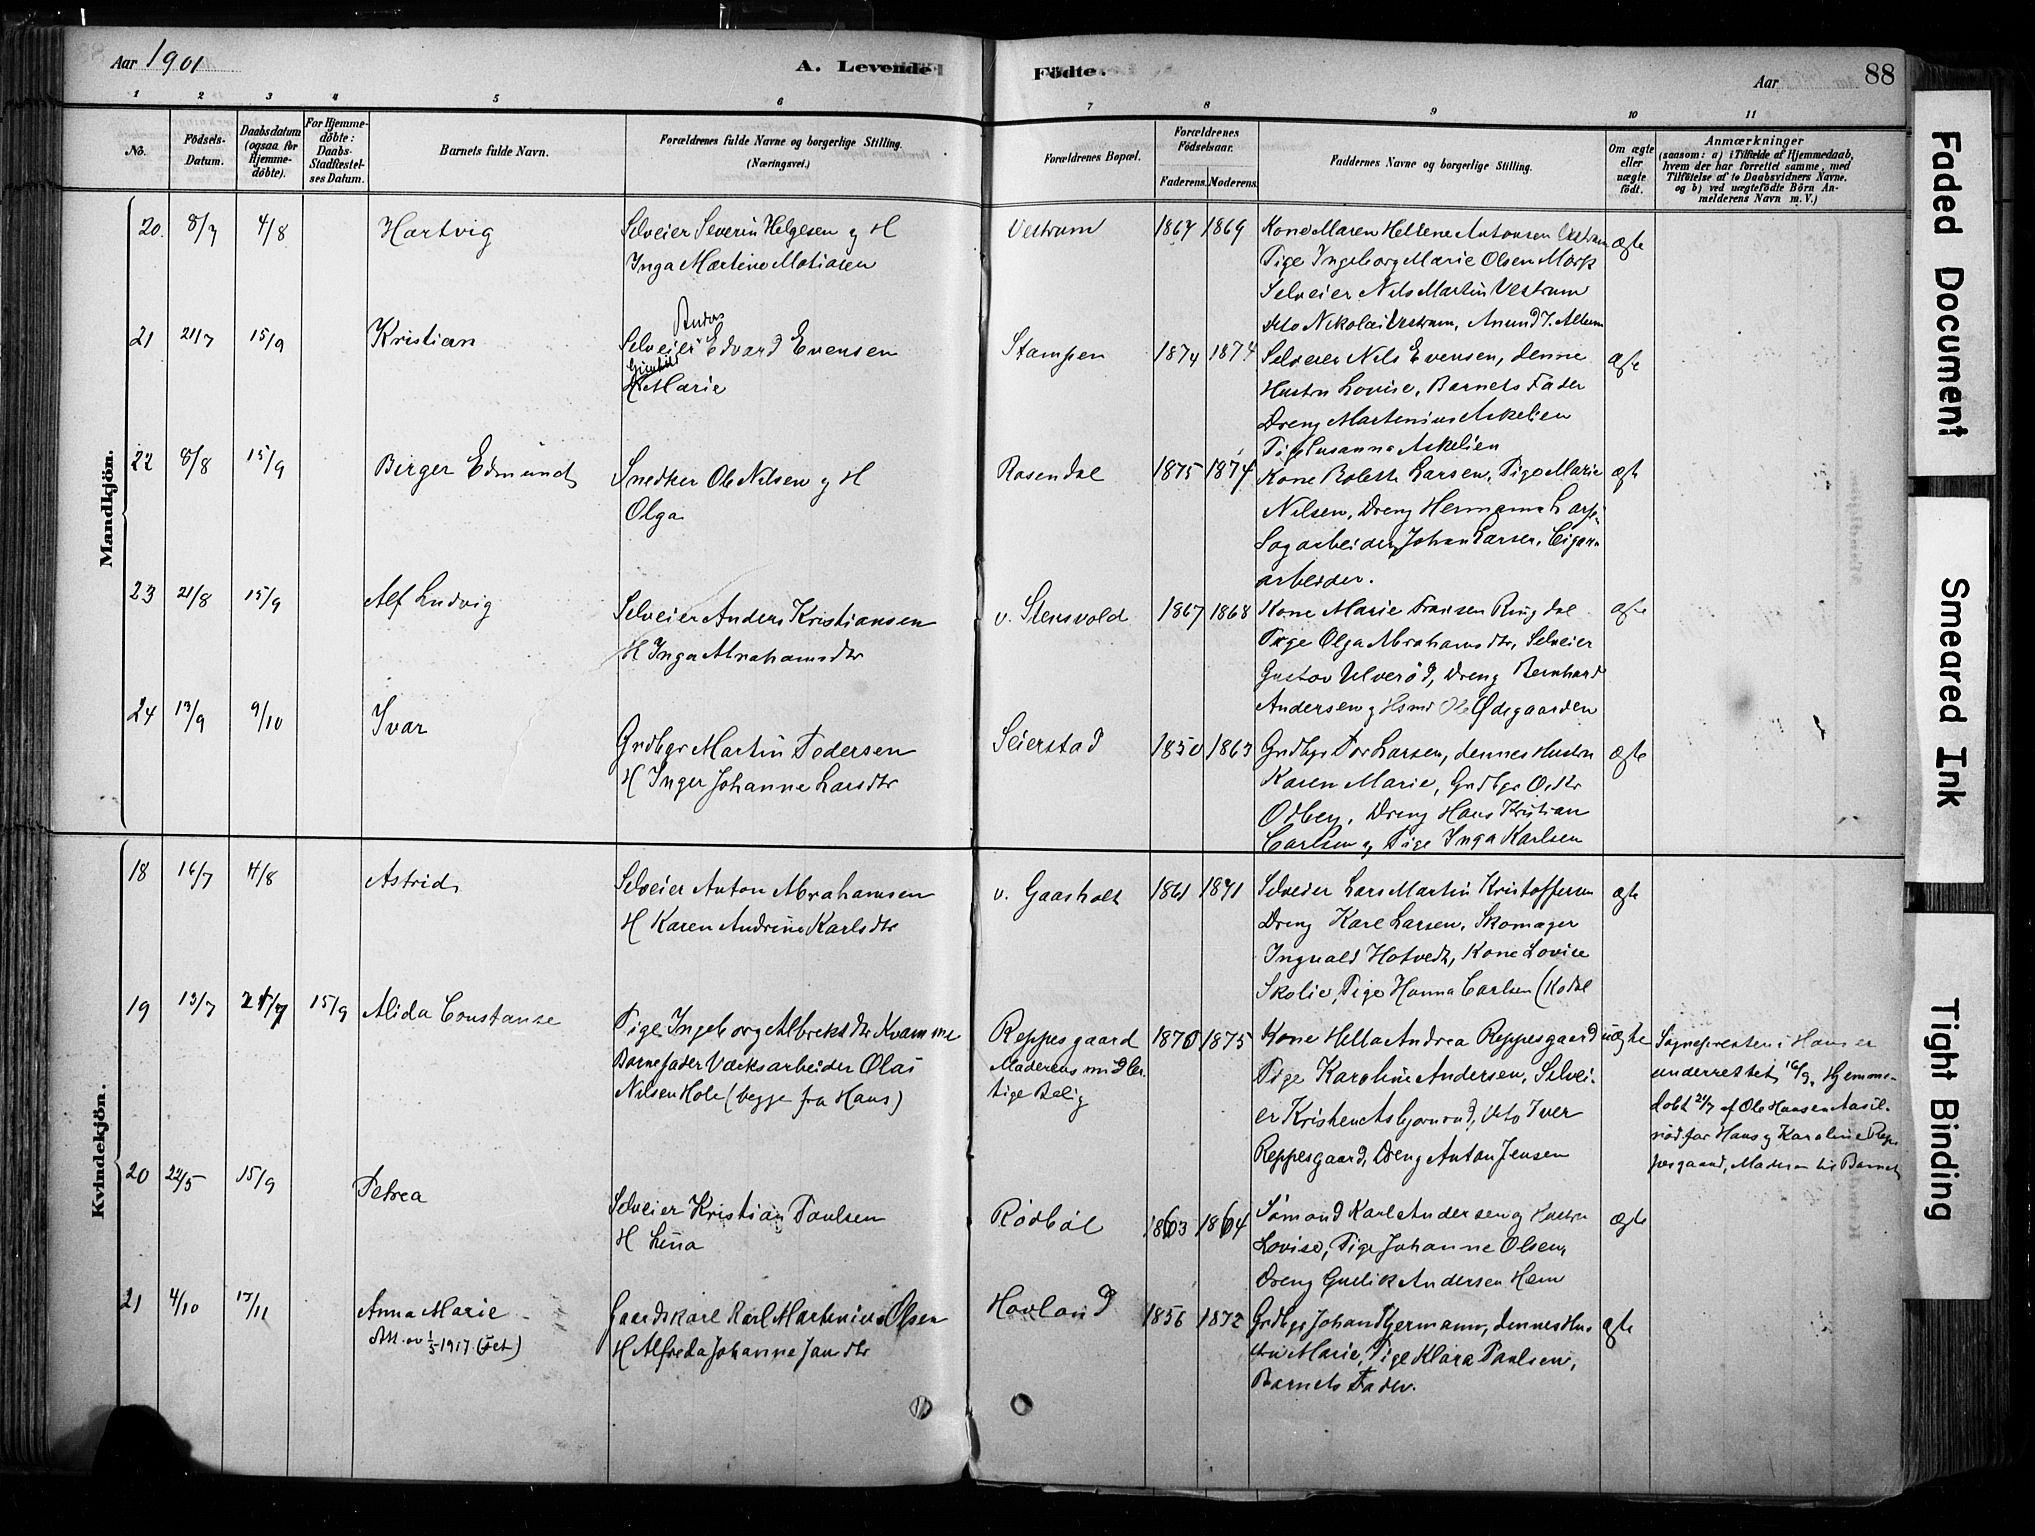 Aar 1901
A. Levende Födte.
Aar
88
1 2 3 4 5 6 7 8 9 10 11
No.
Födsels-Datum.
Daabsdatum (ogsaa for Hjemme-döbte).
For Hjemme-döbte: Daabs-Stadfæstel-ses Datum.
Barnets fulde Navn.
Forældrenes fulde Navne og borgerlige Stilling.
(Næringsvei.)
Forældrenes Bopæl.
Forældrenes Födselsaar.
Faderens. Moderens.
Faddernes Navne og borgerlige Stilling.
Om ægte eller uægte födt.
Anmærkninger
(saasom: a) i Tilfælde af Hjemmedaab,
hvem der har forrettet samme, med
Tilföielse af to Daabsvidners Navne,
og b) ved uægtefödte Börn An-
melderens Navn m. V.)
Mandkjön.
20. 8/7 4/8 Hartvig
Selveier Severin Helgesen og H
Inga Martine Matiasen
Vestrum 1867 1869
Kone Maren Hellene Antonsen Vestrum
Pige Ingeborg Marie Olsen Mork
Selveier Nils Martin Vestrum
dito Nikolai Vestrum, Anund J. Allum
ægte
21 21/7 15/9 Kristian
Anders
Selveier Edvard Evensen
Gunhild
H Marie
Stampen 1874 1874
Selveier Nils Evensen, denne
Hustru Lovise, Barnets Fader
Dreng Martinius Askelien
Pige Susanna Askelien
ægte
22 8/8 15/9 Birger Edmund
Snedker Ole Nilsen og H
Olga
Rosendal 1875 1874
Kone Bolette Larsen, Pige Marie
Nilsen, Dreng Hermann Lars.
Sagarbeider Johan Larsen, Cigar-
arbeider.
ægte
23 21/8 15/9 Alf Ludvig
Selveier Anders Kristiansen
H Inga Abrahamsdtr
v. Stensvold 1867 1868
Kone Marie Fransen Ringdal
Pige Olga Abrahamsdtr, Selveier
Gustav Ulverød, Dreng Bernhard
Andersen og Hsmd Ole Ødegaarden
ægte
24 13/9 9/10 Ivar
Grdbgr Martin Pedersen
H Inger Johanne Larsdtr
Seierstad 1850 1863
Grdbgr Tor Larsen, dennes Hustru
Karen Marie, Grdbgr Peder
Odberg, Dreng Hans Kristian
Carlsen og Pige Inga Karlsen
ægte
Kvindekjön.
18 16/7 4/8 Astrid
Selveier Anton Abrahamsen
H Karen Andrine Karlsdtr
v. Gaasholt 1861 1871
Selveier Lars Martin Kristoffersen
Dreng Karl Larsen, Skomager
Ingvald Hotvedt, Kone Lovise
Skolie, Pige Hanna Carlsen (Kodal
ægte
19 13/7 21/7 15/9 Alida Constanse
Pige Ingeborg Albrektsdtr Kvamme
Barnefader Værksarbeider Olai
Nilsen Hole (begge fra Hans)
Reppesgaard
Moderens midler-
tige Bolig
1870 1875
Kone Hella Andrea Reppesgaard
Pige Karoline Andersen, Selvei-
er Kristen Asbjornrød, dito Iver
Reppesgaard, Dreng Anton Jensen
uægte
Sognepresten i Hans er
underrettet 16/9. Hjemme-
døbt 21/7 af Ole Hansen Aasil-
rød for Hans og Karoline Rep-
pesgaard, Moderen til Barnet
20 22/5 15/9 Petrea
Selveier Kristian Paulsen
H Lina
Rødbøl 1863 1864
Sømand Karl Andersen og Hustru
Lovise, Pige Johanne Olsen,
Dreng Gulik Andersen Hem
ægte
21 4/10 17/11 Anna Marie
Att. av 1/5 1917 (døet)
Gaardskarl Karl Martinius Olsen
H Alfreda Johanne Jansdtr
Hovland 1856 1872
Grdbgr Johan Hjermann, dennes Hus-
tru Marie, Pige Klara Paulsen,
Barnets Fader.
ægte
Faded Document
Smeared Ink
Tight Binding